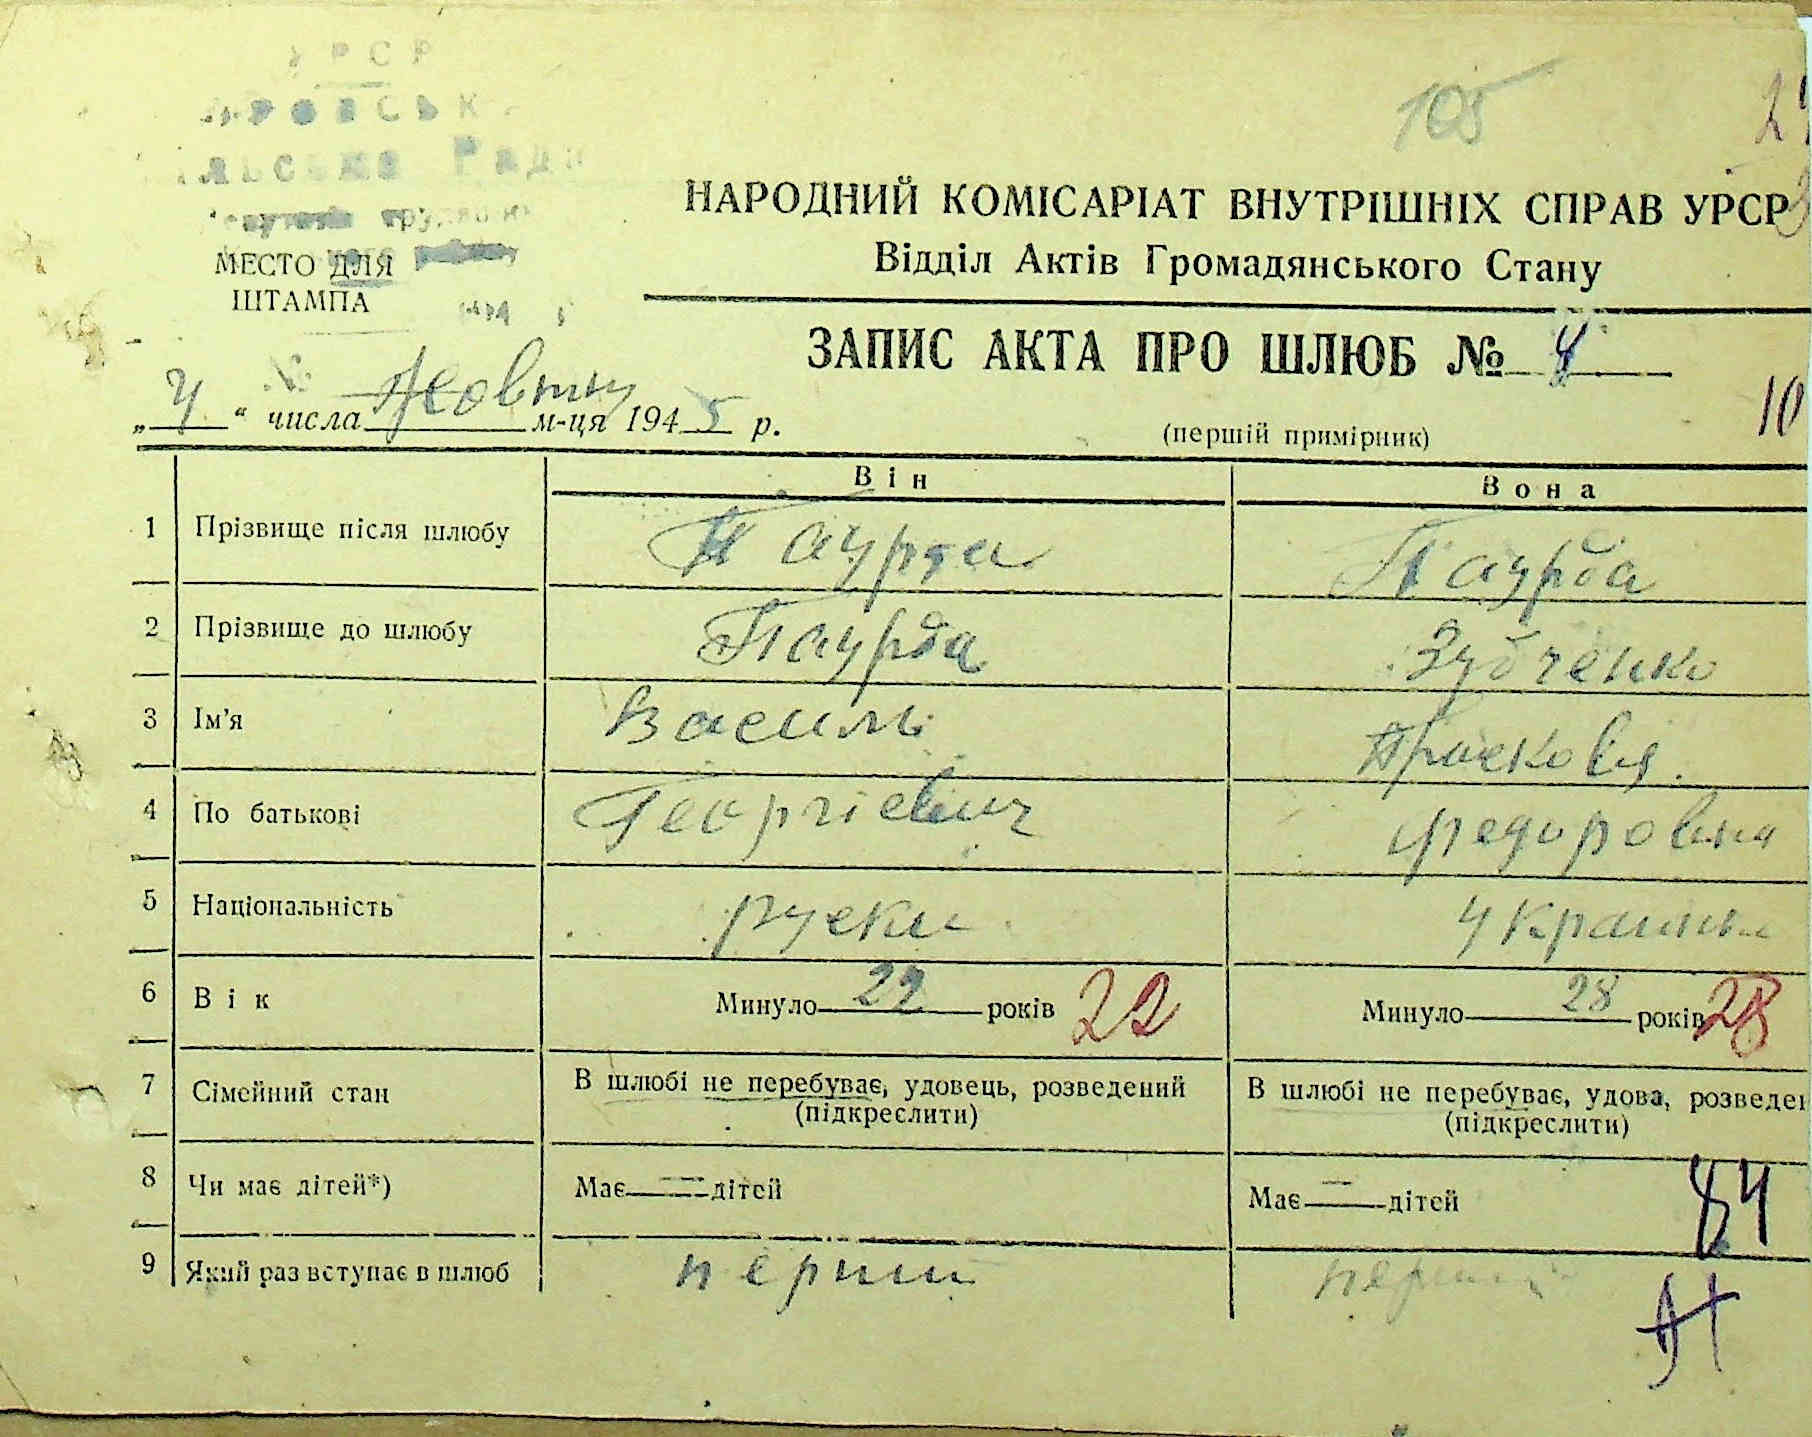 УРСР
105
НАРОДНИЙ КОМІСАРІАТ ВНУТРІШНІХ СПРАВ УРСР
Відділ Актів Громадянського Стану
МЕСТО ДЛЯ
ШТАМПА
ЗАПИС АКТА ПРО ШЛЮБ № 4
„ 4 “ числа Жовтня м-ця 1945 р.
(першій примірник)
10
Він Вона
1 Прізвище після шлюбу Паурда Паурда
2 Прізвище до шлюбу Паурда Зубченко
3 Ім'я Василь Прасковя.
4 По батькові Георгієвич Федоровна
5 Національність руски украинка
6 Вік Минуло 22 років 22 Минуло 28 років 28
7 Сімейний стан В шлюбі не перебуває, удовець, розведений В шлюбі не перебуває, удова, розведен
(підкреслити) (підкреслити)
8 Чи має дітей*) Має — дітей Має — дітей
84
9 Який раз вступає в шлюб перший перший